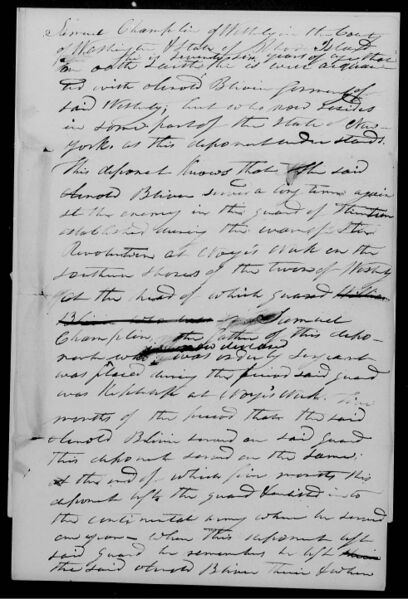 Samuel Champlin of Westerly in the County
of Washington & State of Rhode Island
he is seventy six years of age that
on oath saith he is well acquain
ted with Arnold Bliven formerly of
said Westerly, but who now resides
in some part of the State of New-
york, as this deponent understands.
This deponent knows that the said
Arnold Bliven served a long term again
st the enemy in the guard of
established during the war of the
Revolution at Noyes's Neck on the
southern shores of the town of Westerly
at the head of which guard
Bliven who was Samuel
Champlin, the father of this depo-
nent who was orderly sergeant
was placed during the period said guard
was kept up at Noyes's Neck. Five
months of the period that the said
Arnold Bliven served on said guard
this deponent served on the same;
at the end of which five months this
deponent left the guard & enlisted into
the continental army when he served
one year - when this deponent left
said guard he remembers he left
the said Arnold Bliven there &